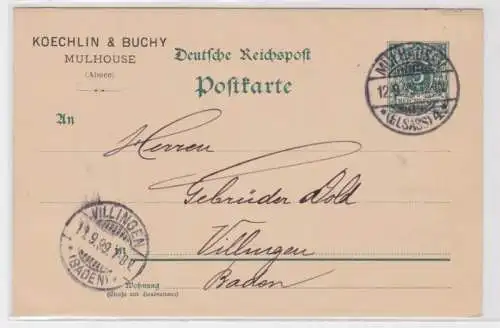 KOECHLIN & BUCHY
MULHOUSE
(Alsace)
Deutsche Reichspost
Postkarte
MÜLHAUSEN
12.9.99
*(ELSASS) 4*
An
Herren
Gebrüder Dold
VILLINGEN
.9.99.
*(BADEN)*
in
Villingen
Baden
Wohnung
(Straße und Hausnummer)